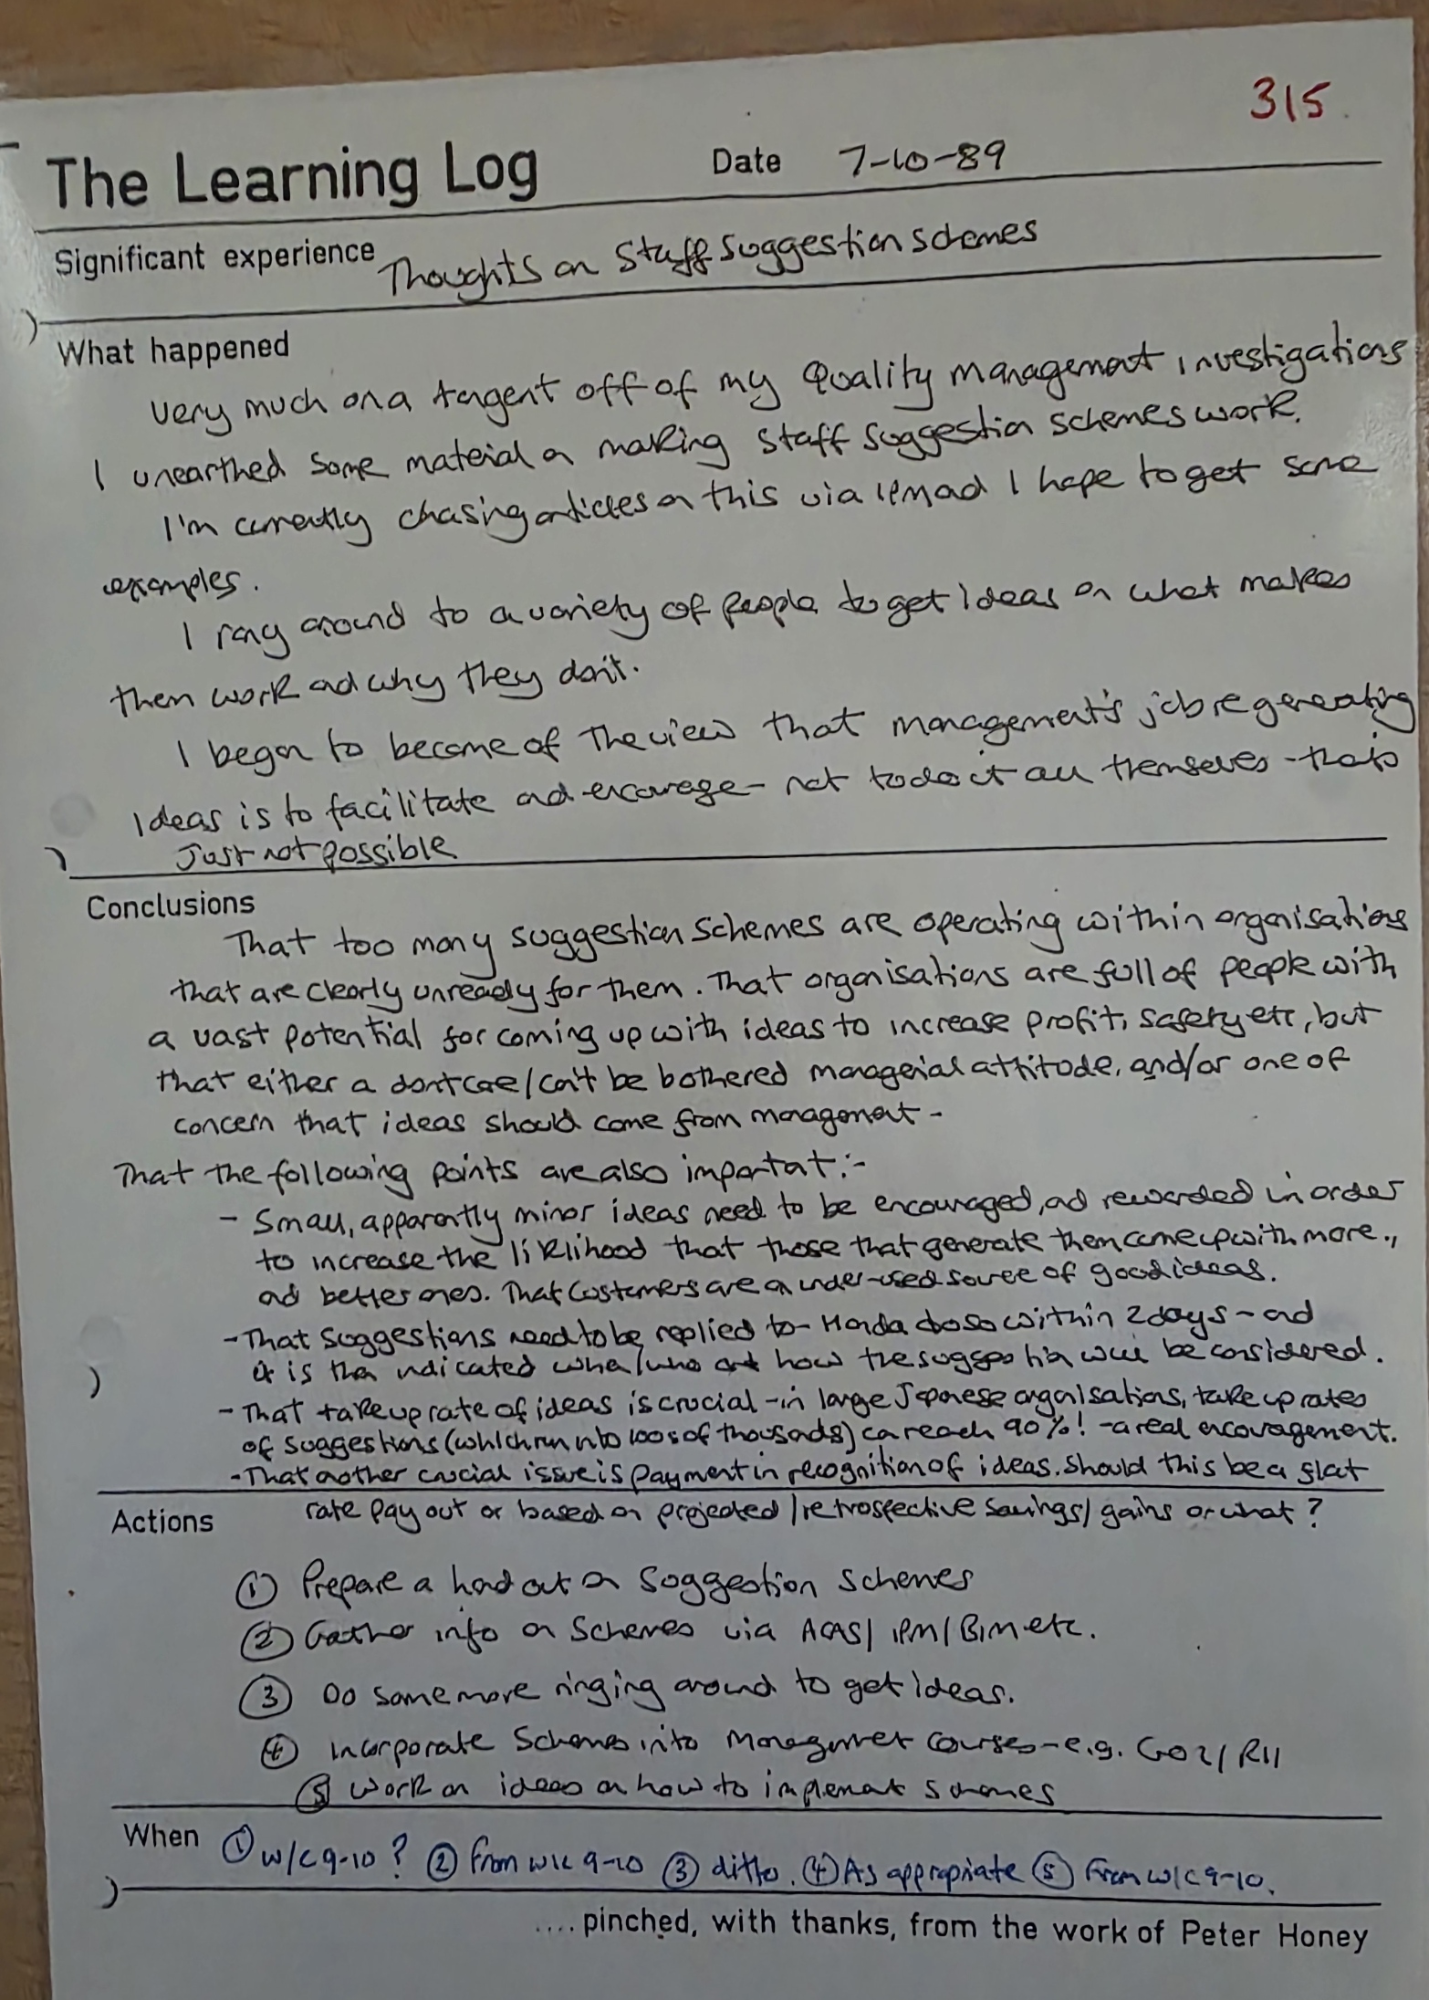 315
The Learning Log Date 7-10-89
Significant experience Thoughts on Staff Suggestion Schemes
What happened
Very much on a tangent off of my Quality management investigations
I unearthed some material on making staff suggestion schemes work.
I'm currently chasing articles on this via IPM and I hope to get some
examples.
I rang around to a variety of people to get ideas on what makes
them work and why they don't.
I began to become of the view that management's job re generating
ideas is to facilitate and encourage - not to do it all themselves - that's
just not possible
Conclusions
That too many suggestion schemes are operating within organisations
that are clearly unready for them. That organisations are full of people with
a vast potential for coming up with ideas to increase profit, safety etc, but
that either a dont care/can't be bothered managerial attitude, and/or one of
concern that ideas should come from management -
That the following points are also important:-
- Small, apparently minor ideas need to be encouraged, and rewarded in order
to increase the liklihood that those that generate them come up with more.,
and better ones. That Customers are an under-used source of good ideas.
- That suggestions need to be replied to - Honda do so within 2 days - and
it is then indicated when/who and how the suggestion will be considered.
- That take up rate of ideas is crucial - in large Japanese organisations, take up rates
of suggestions (which run into 100s of thousands) can reach 90%! - a real encouragement.
- That another crucial issue is payment in recognition of ideas. Should this be a flat
rate pay out or based on projected/retrospective savings/gains or what?
Actions
① Prepare a hand out on Suggestion Schemes
② Gather info on Schemes via ACAS/ IPM/BIM etc.
③ Do some more ringing around to get ideas.
④ Incorporate Schemes into Management courses - e.g. GO2/ R11
⑤ Work on ideas on how to implement schemes
When ① w/c 9-10? ② From w/c 9-10 ③ ditto. ④ As appropriate ⑤ From w/c 9-10.
....pinched, with thanks, from the work of Peter Honey